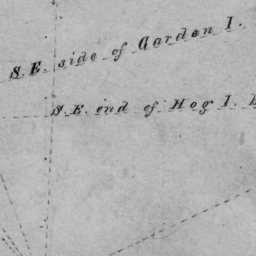 S.E. side of Garden I.
S.E. end of Hog I.